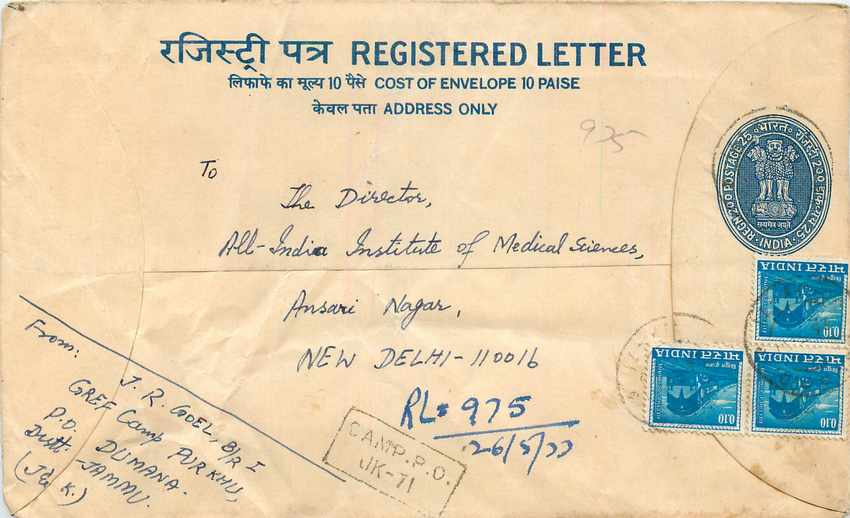 रजिस्ट्री पत्र REGISTERED LETTER
लिफाफे का मूल्य 10 पैसे COST OF ENVELOPE 10 PAISE
केवल पता ADDRESS ONLY
925
REGN 200 POSTAGE 25 भारत रजिस्ट्री 200 डाक व्यय 25
सत्यमेव जयते
INDIA
To
The Director,
All-India Institute of Medical Sciences,
Ansari Nagar,
NEW DELHI-110016
RL= 975
26/5/77
From:
J. R. GOEL, B/R I
GREF Camp PURKHU,
P.O. DUMANA.
Distt. JAMMU.
(J& K.)
CAMP.P.O.
JK-71
भारत INDIA
0.10
भारत INDIA
0.10
भारत INDIA
0.10